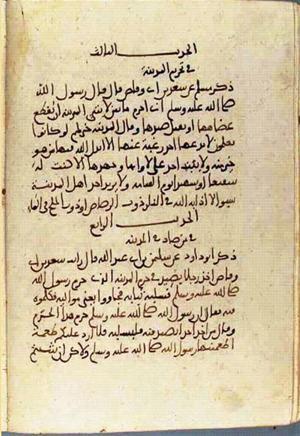 الحديث الثالث
في تحريم المدينة
ذكر مسلم عن سعد بن أبي وقاص قال قال رسول الله
صلى الله عليه وسلم إني أحرم ما بين لابتي المدينة أن يقطع
عضاهها أو يقتل صيدها وقال المدينة خير لهم لو كانوا
يعلمون لا يدعها أحد رغبة عنها إلا أبدل الله فيها من هو
خير منه ولا يثبت أحد على لأوائها وجهدها إلا كنت له
شفيعا أو شهيدا يوم القيامة ولا يريد أحد أهل المدينة
بسوء إلا أذابه الله في النار ذوب الرصاص أو ذوب الملح في الماء
الحديث الرابع
فيمن صاد في المدينة
ذكر أبو داود عن سليمن بن أبي عبد الله قال رأيت سعد بن أبي
وقاص أخذ رجلا يصيد في حرم المدينة الذي حرم رسول الله
صلى الله عليه وسلم فسلبه ثيابه فجاءوا يعني مواليه فكلموه
فيه فقال إن رسول الله صلى الله عليه وسلم حرم هذا الحرم
وقال من أخذ أحدا يصيد فيه فليسلبه فلا أرد عليكم طعمة
أطعمنيها رسول الله صلى الله عليه وسلم ولكن إن شئتم